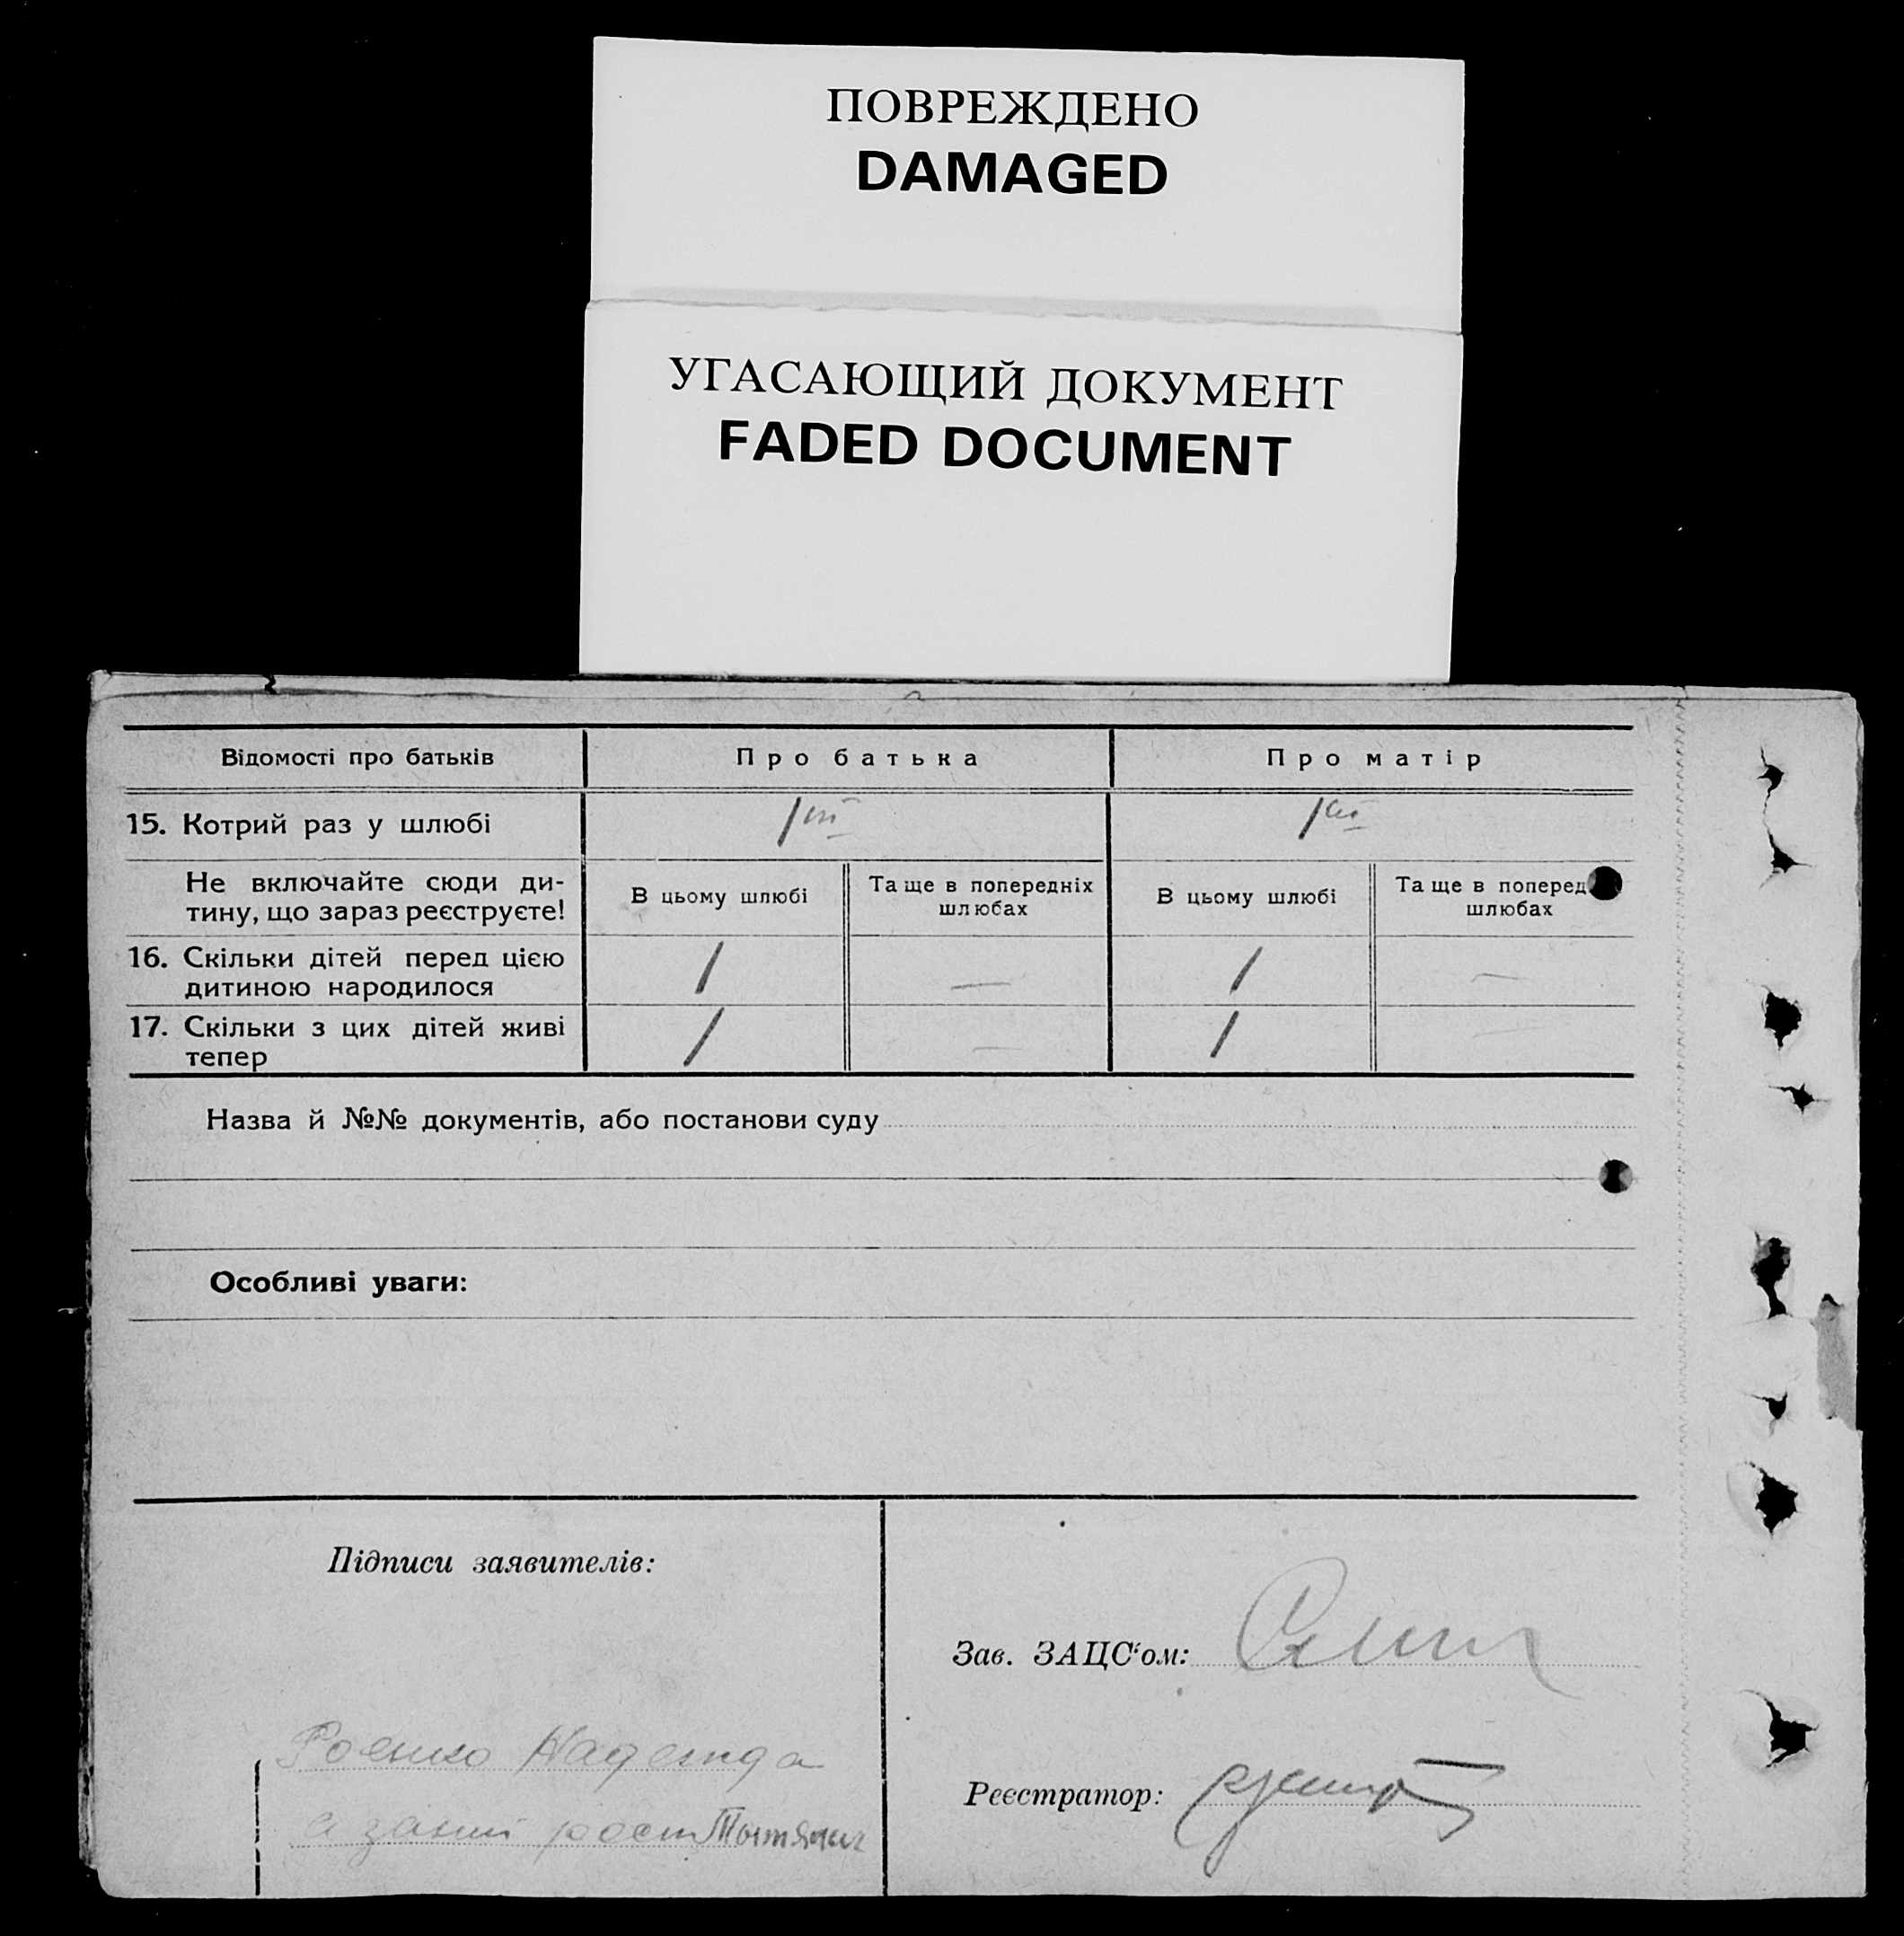 ПОВРЕЖДЕНО
DAMAGED
УГАСАЮЩИЙ ДОКУМЕНТ
FADED DOCUMENT
Відомості про батьків Про батька Про матір
15. Котрий раз у шлюбі 1ий 1ий
Не включайте сюди ди-
тину, що зараз реєструєте!
В цьому шлюбі
Та ще в попередніх
шлюбах
В цьому шлюбі
Та ще в поперед
шлюбах
16. Скільки дітей перед цією
дитиною народилося
1 — 1 —
17. Скільки з цих дітей живі
тепер
1 — 1 —
Назва й №№ документів, або постанови суду
Особливі уваги:
Підписи заявителів:
Зав. ЗАЦС‘ом:
Роенко Надежда
Реєстратор: